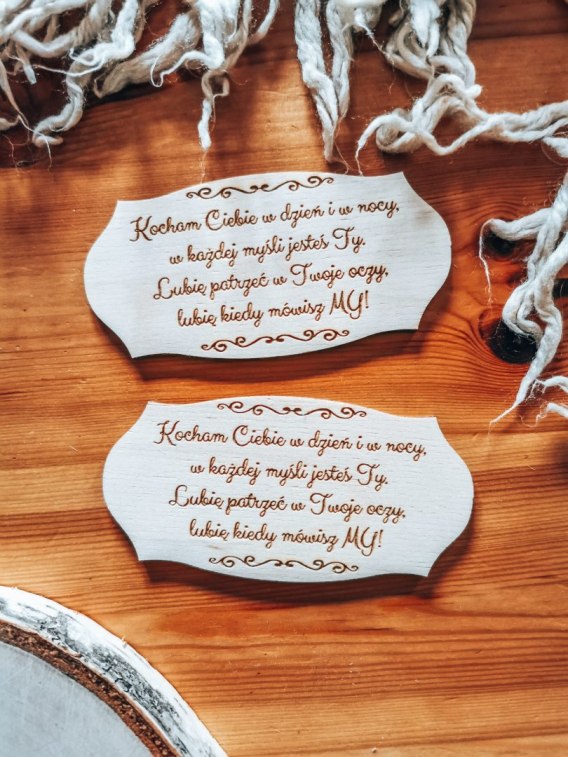 Kocham Ciebie w dzień i w nocy,
w każdej myśli jesteś Ty.
Lubię patrzeć w Twoje oczy,
lubię kiedy mówisz MY!
Kocham Ciebie w dzień i w nocy,
w każdej myśli jesteś Ty.
Lubię patrzeć w Twoje oczy,
lubię kiedy mówisz MY!